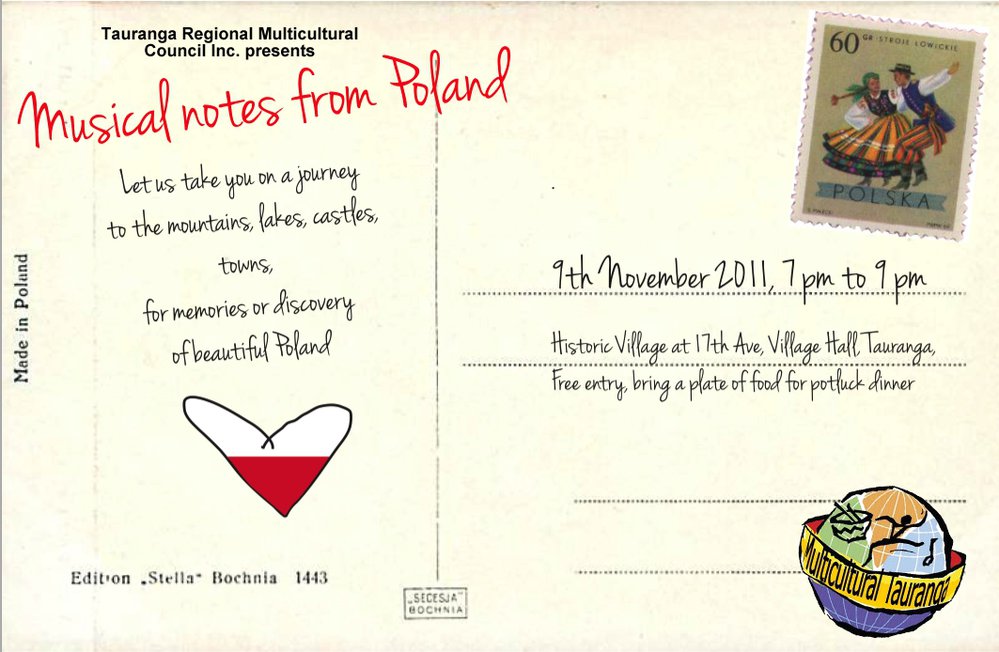 Tauranga Regional Multicultural
Council Inc. presents
Musical notes from Poland
Let us take you on a journey
to the mountains, lakes, castles,
towns,
for memories or discovery
of beautiful Poland
Made in Poland
Edition „Stella" Bochnia 1443
„SECESJA"
BOCHNIA
60 GR STROJE ŁOWICKIE
POLSKA
9th November 2011, 7pm to 9pm
Historic Village at 17th Ave, Village Hall, Tauranga,
Free entry, bring a plate of food for potluck dinner
Multicultural Tauranga